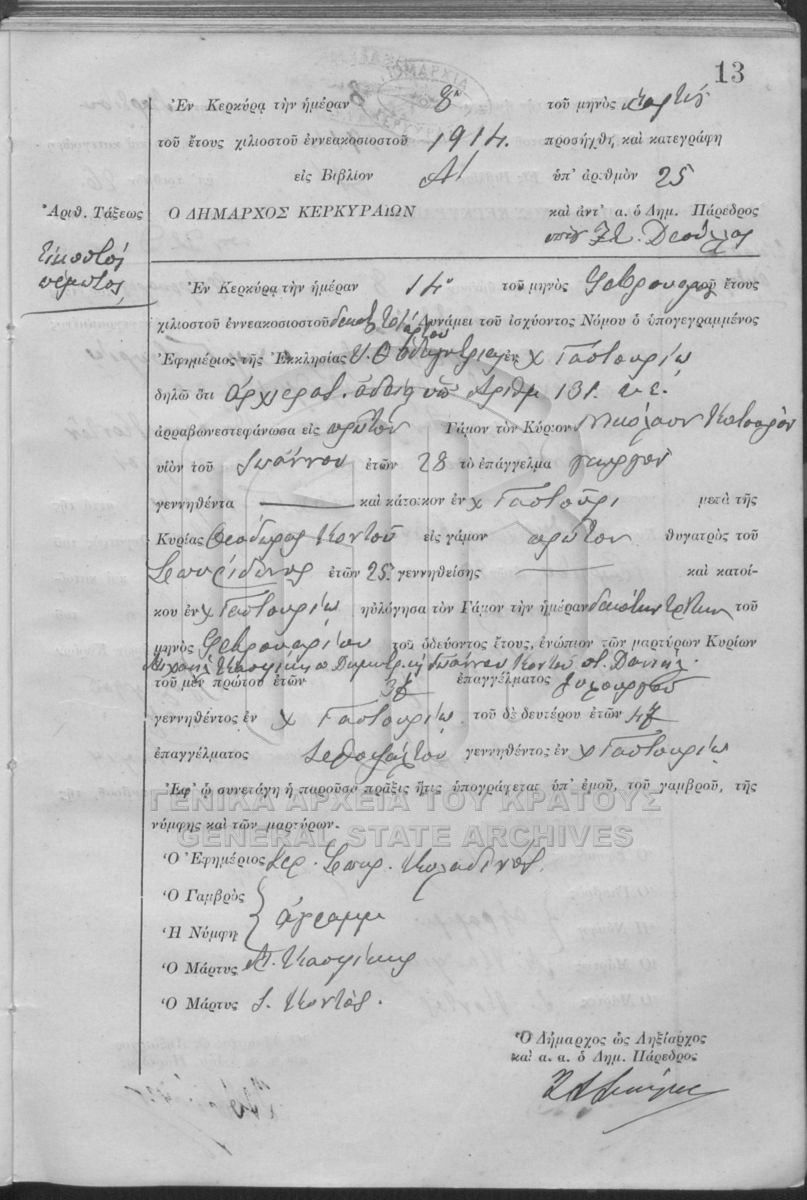 13
Ἐν Κερκύρᾳ τὴν ἡμέραν 8ῃ τοῦ μηνὸς Μαρτίου
τοῦ ἔτους χιλιοστοῦ ἐννεακοσιοστοῦ 1914. προσήχθη καὶ κατεγράφη
εἰς Βιβλίον Α! ὑπ' ἀριθμὸν 25
Ἀριθ. Τάξεως Ο ΔΗΜΑΡΧΟΣ ΚΕΡΚΥΡΑΙΩΝ καὶ ἀντ' α. ὁ Δημ. Πάρεδρος
Εἰκοστός
πέμπτος
Ἐν Κερκύρᾳ τὴν ἡμέραν 14 τοῦ μηνὸς Φεβρουαρίου ἔτους
χιλιοστοῦ ἐννεακοσιοστοῦ δεκάτου τετάρτου Δυνάμει τοῦ ἰσχύοντος Νόμου ὁ ὑπογεγραμμένος
Ἐφημέριος τῆς Ἐκκλησίας Υ. Θ. Ὁδηγητρίας ἐν χ Γαστουρίῳ
δηλῶ ὅτι ἀρχιερατ. ἀδείᾳ ὑπ' Ἀριθμ 131. ἐ. ἔ.
ἀρραβωνεστεφάνωσα εἰς πρῶτον Γάμον τὸν Κύριον Νικόλαον
υἱὸν τοῦ Ἰωάννου ἐτῶν 28 τὸ ἐπάγγελμα γεωργὸν
γεννηθέντα — καὶ κάτοικον ἐν χ Γαστοῦρι μετὰ τῆς
Κυρίας Θεοδώρας Κοντοῦ εἰς γάμον πρῶτον θυγατρὸς τοῦ
Σπυρίδωνος ἐτῶν 25 γεννηθείσης — καὶ κατοί-
κου ἐν χ Γαστουρίῳ ηὐλόγησα τὸν Γάμον τὴν ἡμέραν δεκάτην τετάρτην τοῦ
μηνὸς Φεβρουαρίου τοῦ ὁδεύοντος ἔτους, ἐνώπιον τῶν μαρτύρων Κυρίων
Μιχαὴλ π. Δημητρ. καὶ Ἰωάννου Κοντοῦ π. Δανιήλ.
τοῦ μὲν πρώτου ἐτῶν ἐπαγγέλματος ξυλουργοῦ
γεννηθέντος ἐν χ Γαστουρίῳ τοῦ δὲ δευτέρου ἐτῶν 47
ἐπαγγέλματος γεννηθέντος ἐν χ Γαστουρίῳ
Ἐφ' ᾧ συνετάγη ἡ παροῦσα πρᾶξις ἥτις ὑπογράφεται ὑπ' ἐμοῦ, τοῦ γαμβροῦ, τῆς
νύμφης καὶ τῶν μαρτύρων.
ΓΕΝΙΚΑ ΑΡΧΕΙΑ ΤΟΥ ΚΡΑΤΟΥΣ
GENERAL STATE ARCHIVES
Ὁ Ἐφημέριος Ἱερ. Σπυρ.
Ὁ Γαμβρὸς
Ἡ Νύμφη ἀγράμμ
Ὁ Μάρτυς
Ὁ Μάρτυς Ι. Κοντός.
Ὁ Δήμαρχος ὡς Ληξίαρχος
καὶ α. α. ὁ Δημ. Πάρεδρος